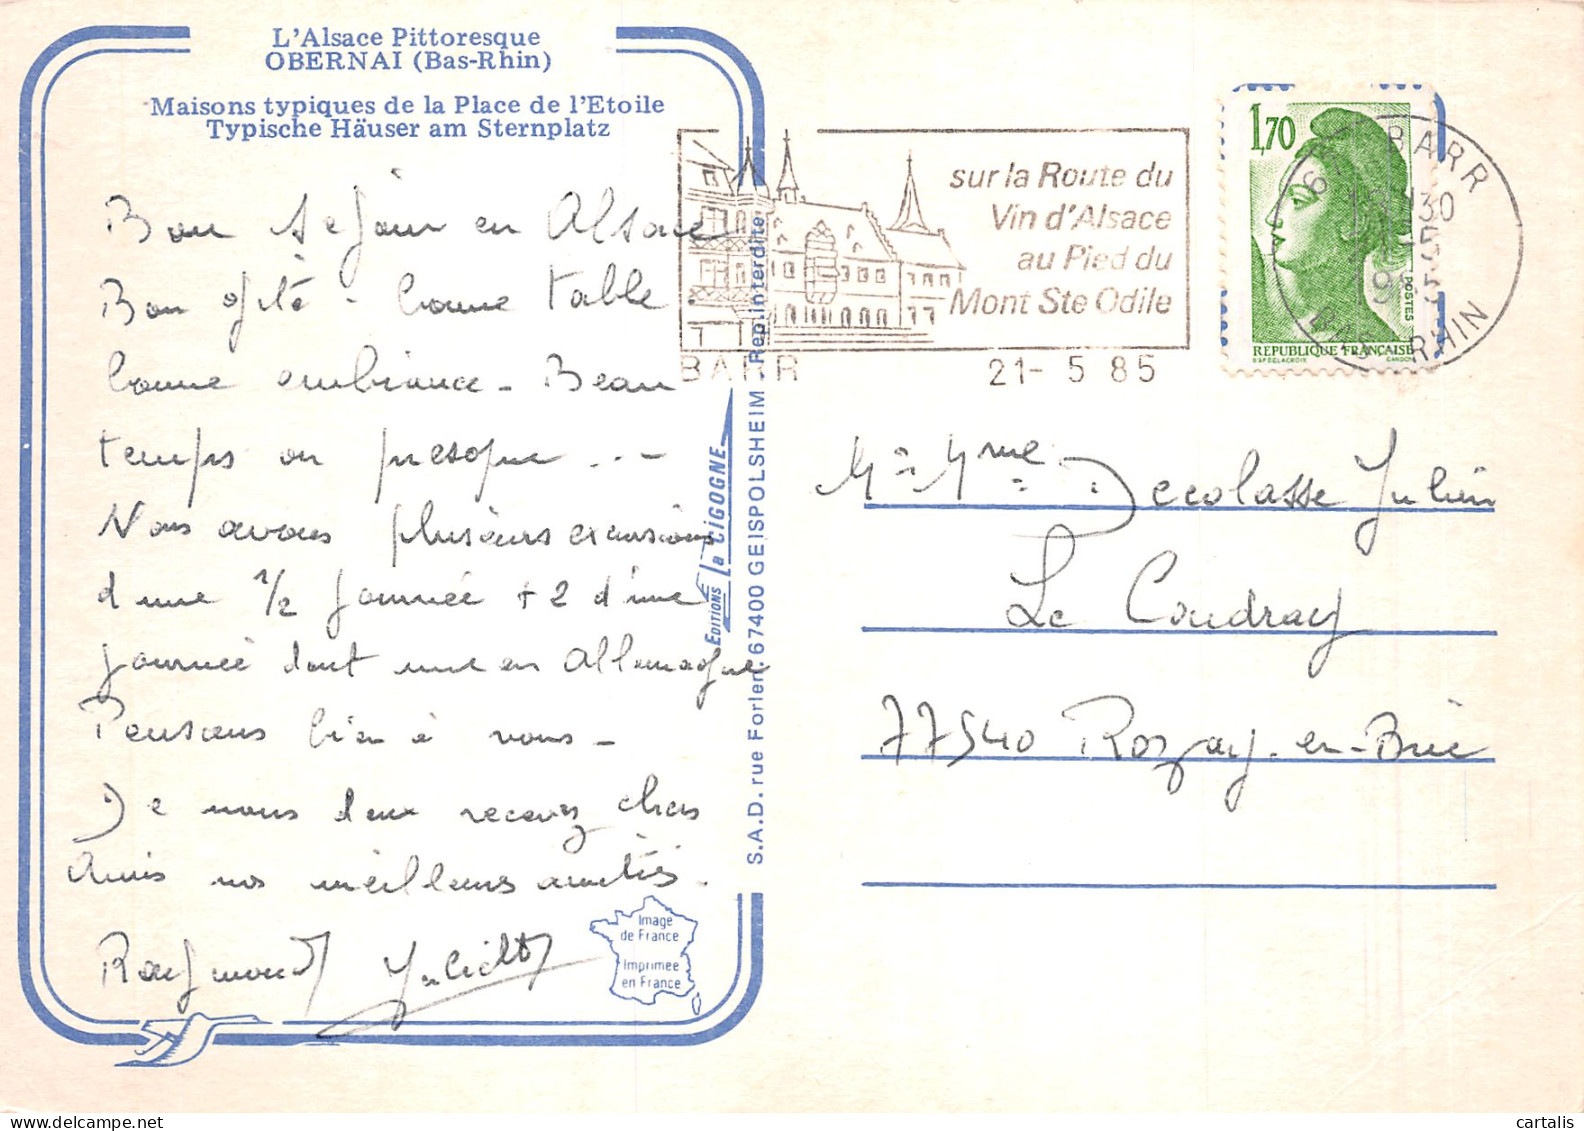 L'Alsace Pittoresque
OBERNAI (Bas-Rhin)
Maisons typiques de la Place de l'Etoile
Typische Häuser am Sternplatz
Bon séjour en Alsace
Bon gîté - bonne table.
bonne ambiance - Beau
temps ou presque ...
Nous avons plusieurs excursions
d'une 1/2 journée + 2 d'une
journée dont une en Allemagne
Pensons bien à vous -
De nous deux recevez chers
Amis nos meilleurs amitiés.
Raymond Juliette
Image
de France
Imprimée
en France
EDITIONS La CIGOGNE
S.A.D. rue Forlen, 67400 GEISPOLSHEIM - Rep. interdite
sur la Route du
Vin d'Alsace
au Pied du
Mont Ste Odile
BARR 21-5 85
1,70
POSTES
REPUBLIQUE FRANÇAISE
D'AP. DELACROIX GANDON
67 BARR
BAS RHIN
M= Mme Decolasse Julien
Le Coudray
77540 Rozay-en-Brie
cartalis
delcampe.net